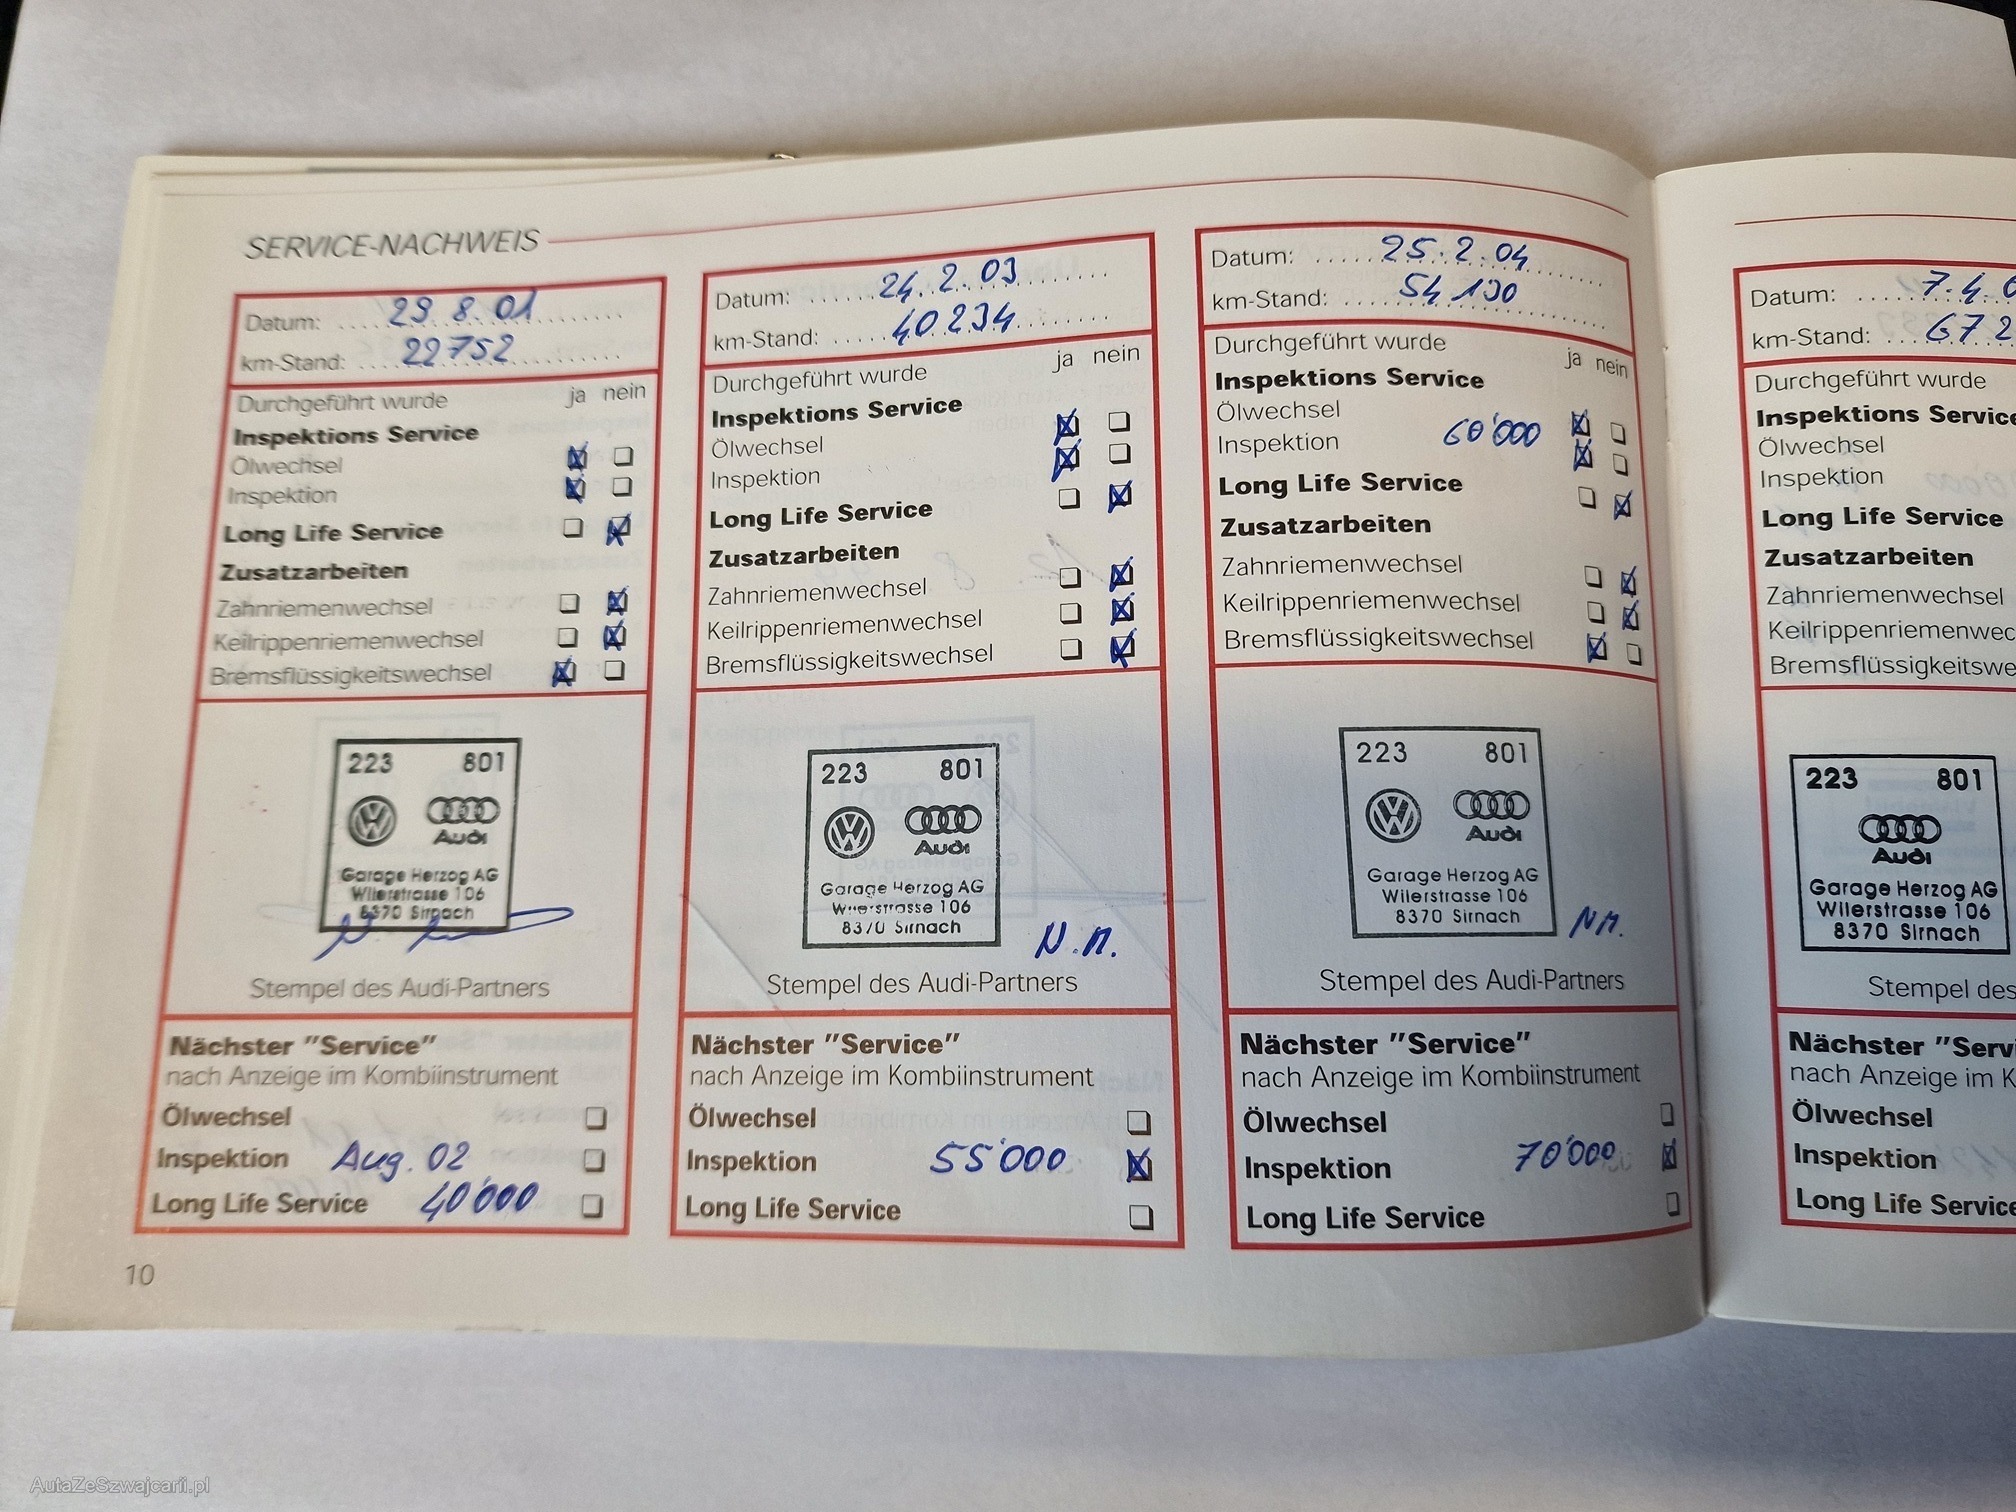 SERVICE-NACHWEIS
Datum: 29.8.01
km-Stand: 22752
Durchgeführt wurde ja nein
Inspektions Service
Ölwechsel
Inspektion
Long Life Service
Zusatzarbeiten
Zahnriemenwechsel
Keilrippenriemenwechsel
Bremsflüssigkeitswechsel
223 801
Audi
Garage Herzog AG
Wilerstrasse 106
8370 Sirnach
Stempel des Audi-Partners
Nächster "Service"
nach Anzeige im Kombiinstrument
Ölwechsel
Inspektion Aug. 02
Long Life Service 40'000
10
Datum: 24.2.03
km-Stand: 40234
Durchgeführt wurde ja nein
Inspektions Service
Ölwechsel
Inspektion
Long Life Service
Zusatzarbeiten
Zahnriemenwechsel
Keilrippenriemenwechsel
Bremsflüssigkeitswechsel
223 801
Audi
Garage Herzog AG
Wilerstrasse 106
8370 Sirnach
N.M.
Stempel des Audi-Partners
Nächster "Service"
nach Anzeige im Kombiinstrument
Ölwechsel
Inspektion 55'000
Long Life Service
Datum: 25.2.04
km-Stand: 54130
Durchgeführt wurde ja nein
Inspektions Service
Ölwechsel
Inspektion 60'000
Long Life Service
Zusatzarbeiten
Zahnriemenwechsel
Keilrippenriemenwechsel
Bremsflüssigkeitswechsel
223 801
Audi
Garage Herzog AG
Wilerstrasse 106
8370 Sirnach
NM.
Stempel des Audi-Partners
Nächster "Service"
nach Anzeige im Kombiinstrument
Ölwechsel
Inspektion 70'000
Long Life Service
Datum: 7.4.0
km-Stand: 672
Durchgeführt wurde
Inspektions Service
Ölwechsel
Inspektion
Long Life Service
Zusatzarbeiten
Zahnriemenwechsel
Keilrippenriemenwec
Bremsflüssigkeitswe
223 801
Audi
Garage Herzog AG
Wilerstrasse 106
8370 Sirnach
Stempel des
Nächster "Servi
nach Anzeige im K
Ölwechsel
Inspektion
Long Life Service
AutaZeSzwajcarii.pl